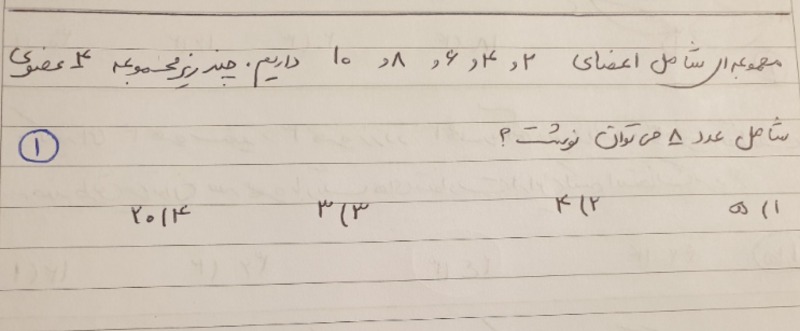 مجموعه ای شامل اعضای ۲ و ۴ و ۶ و ۸ و ۱۰ داریم. چند زیرمجموعه ۴ عضوی
شامل عدد ۸ می توان نوشت ؟ ۱
۱) ۵ ۲) ۴ ۳) ۳ ۴) ۲۰